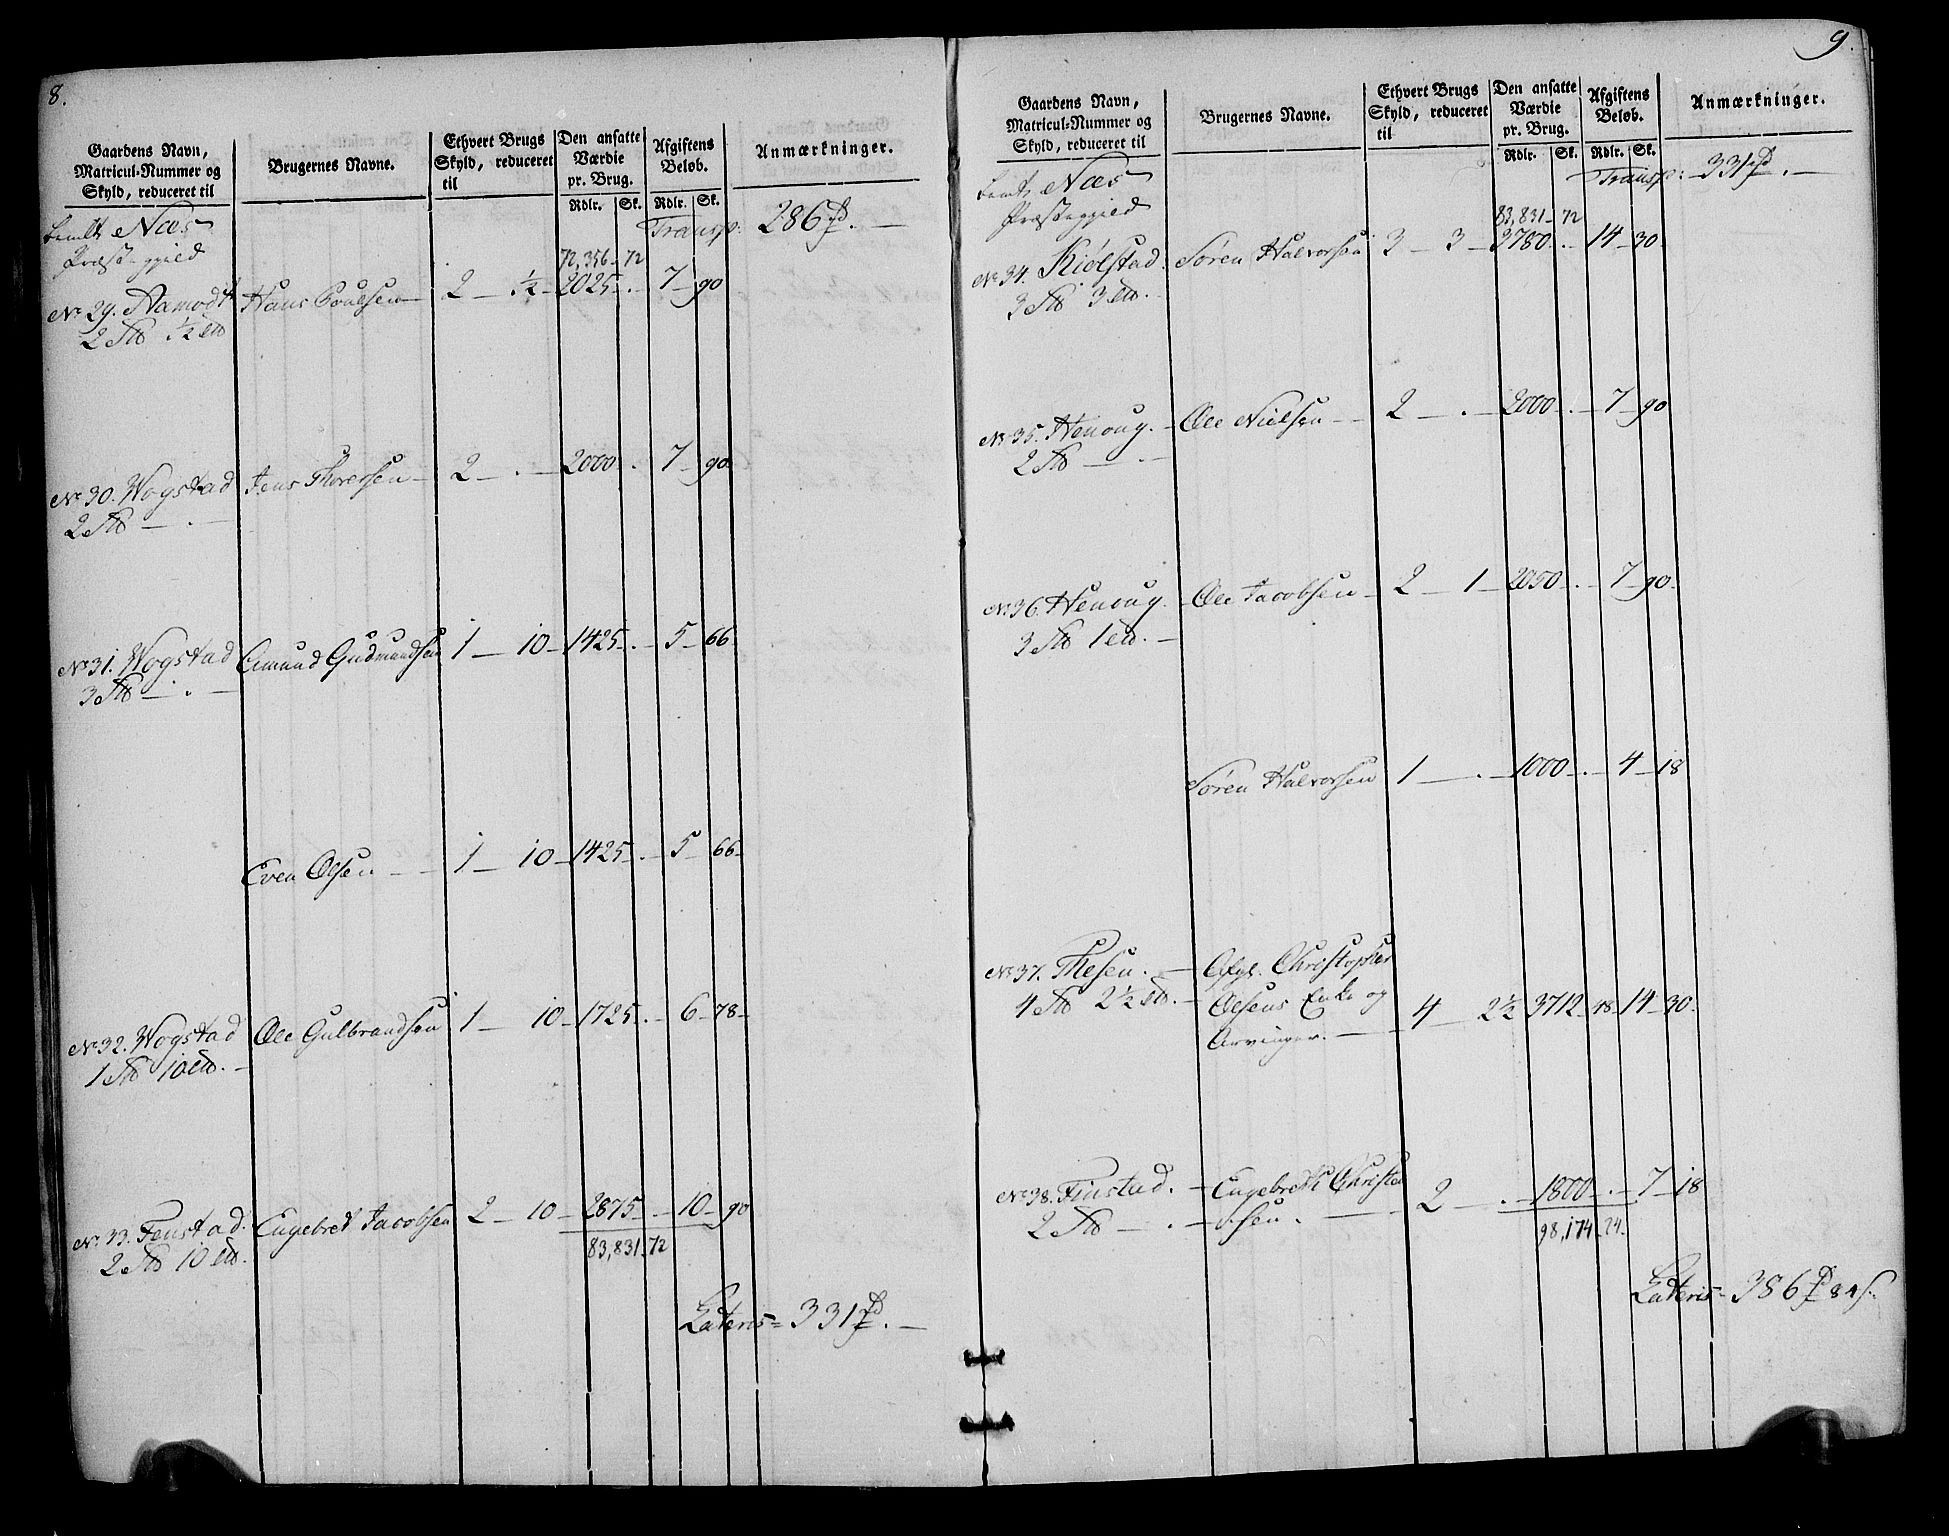 8.
Gaardens Navn, Matricul-Nummer og Skyld, reduceret til
Brugernes Navne.
Ethvert Brugs Skyld, reduceret til
Den ansatte Værdie pr. Brug.
Rdlr. Sk.
Afgiftens Beløb.
Rdlr. Sk.
Anmærkninger.
Næs
Præstegjeld
Transp: 286
72,356 - 72
No 29. Aamodt Hans Poulsen 2 - ½ - 2025 - . 7 - 90
2 ½
No 30. Wogstad Jens Thorersen 2 - . - 2000 . 7 - 90
2 - . -
No 31. Wogstad Amund Gudmundsen 1 - 10 - 1425 - . - 5 - 66
3 - . -
Even Olsen - - 1 - 10 - 1425 - . - 5 - 66
No 32. Wogstad Ole Gulbrandsen 1 - 10 - 1725 - . - 6 - 78
1 10
No 33. Fenstad Engebret Jacobsen 2 - 10 - 2875 - . - 10 - 90
2 10
83,831 - 72
Lateris = 331
9.
Gaardens Navn, Matricul-Nummer og Skyld, reduceret til
Brugernes Navne.
Ethvert Brugs Skyld, reduceret til
Den ansatte Værdie pr. Brug.
Rdlr. Sk.
Afgiftens Beløb.
Rdlr. Sk.
Anmærkninger.
Næs
Præstegjeld
Transp: 331
83,831 - 72
No 34. Kiølstad Søren Halvorsen 3 - 3 - 3780 - . - 14 - 30
3 3
No 35. Henoug. - Ole Nielsen - - 2 - . - 2000 - . - 7 - 90
2 - . -
No 36. Henoug. - Ole Jacobsen - 2 - 1 - 2050 - . - 7 - 90
3 1
Søren Halvorsen 1 - . - 1000 - . - 4 - 18
No 37. Thesen. - Afg. Christopher
4 2½ - Olsens Enke og 4 2½ 3712 - 48 - 14 - 30
Arvinger. -
No 38. Finstad. - Engebreth Christen
2 - . - sen. - 2 . - 1800 - . - 7 - 18
98,174 - 24
Lateris = 386 84